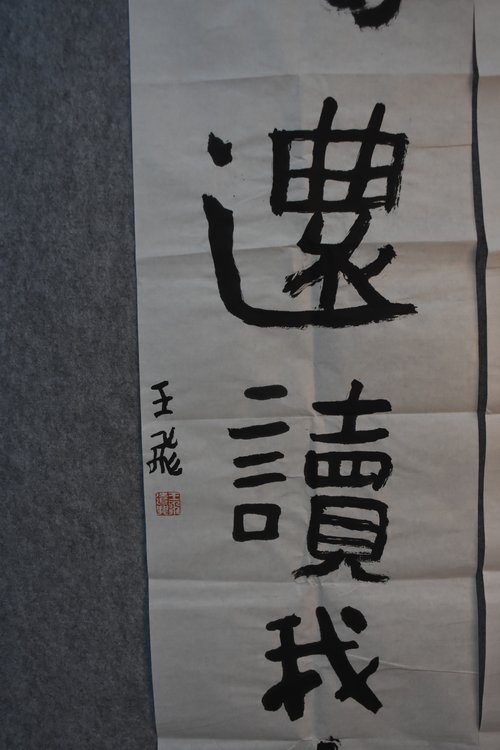 還讀我
王飛